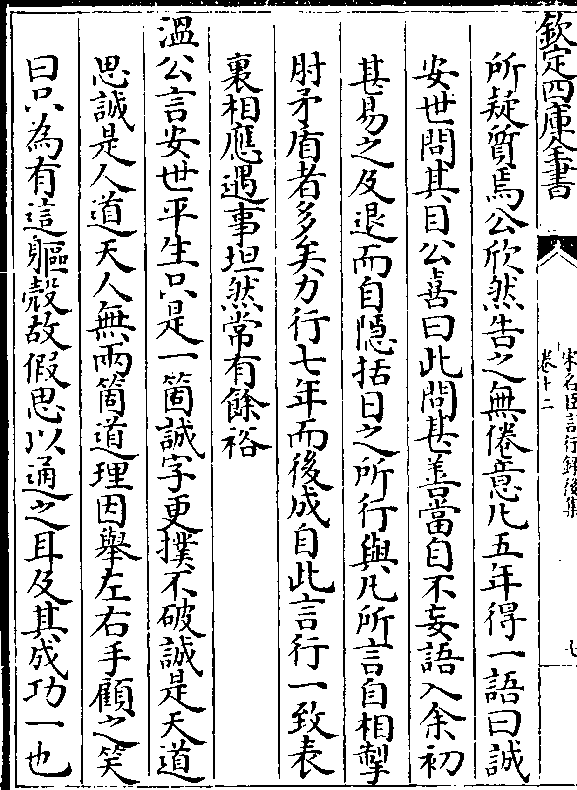 欽定四庫全書
宋名臣言行錄後集
卷十二
七
所疑質焉公欣然告之無倦意凡五年得一語曰誠
安世問其目公喜曰此問甚善當自不妄語入余初
甚易之及退而自隱括日之所行與凡所言自相掣
肘矛盾者多矣力行七年而後成自此言行一致表
裏相應遇事坦然常有餘裕
溫公言安世平生只是一箇誠字更撲不破誠是天道
思誠是人道天人無兩箇道理因舉左右手顧之笑
曰只為有這軀殼故假思以通之耳及其成功一也